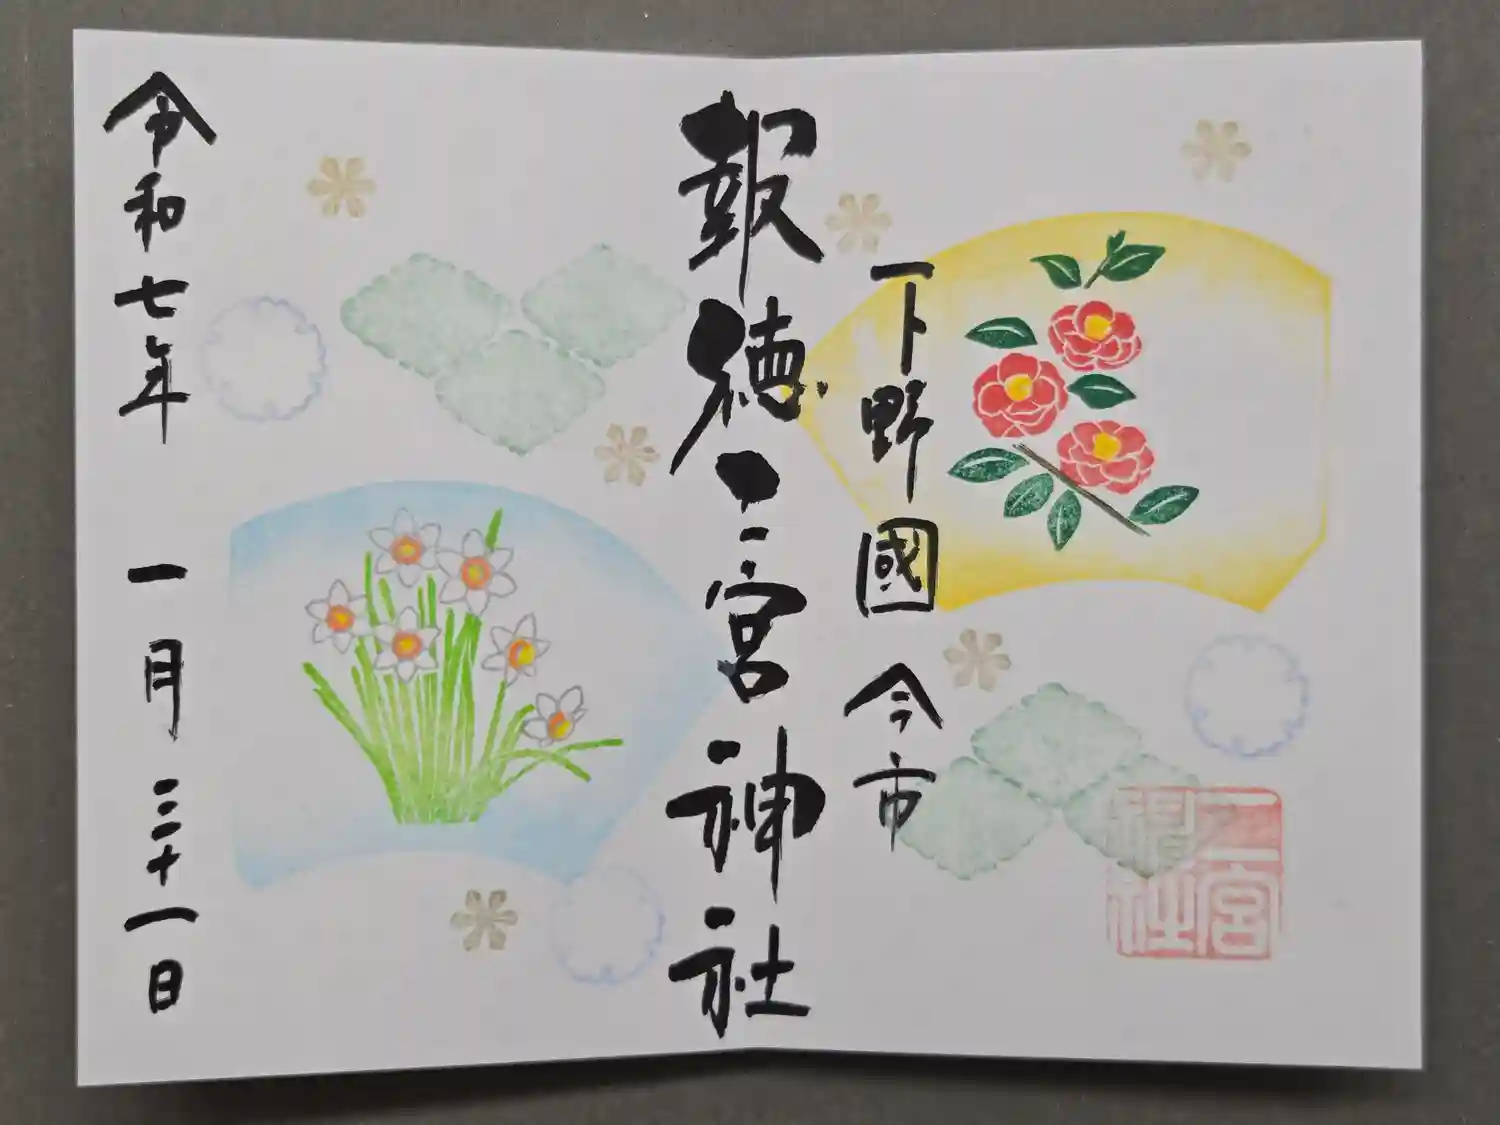 下野國 今市
報徳二宮神社
令和七年 一月 三十一日
二宮
神社